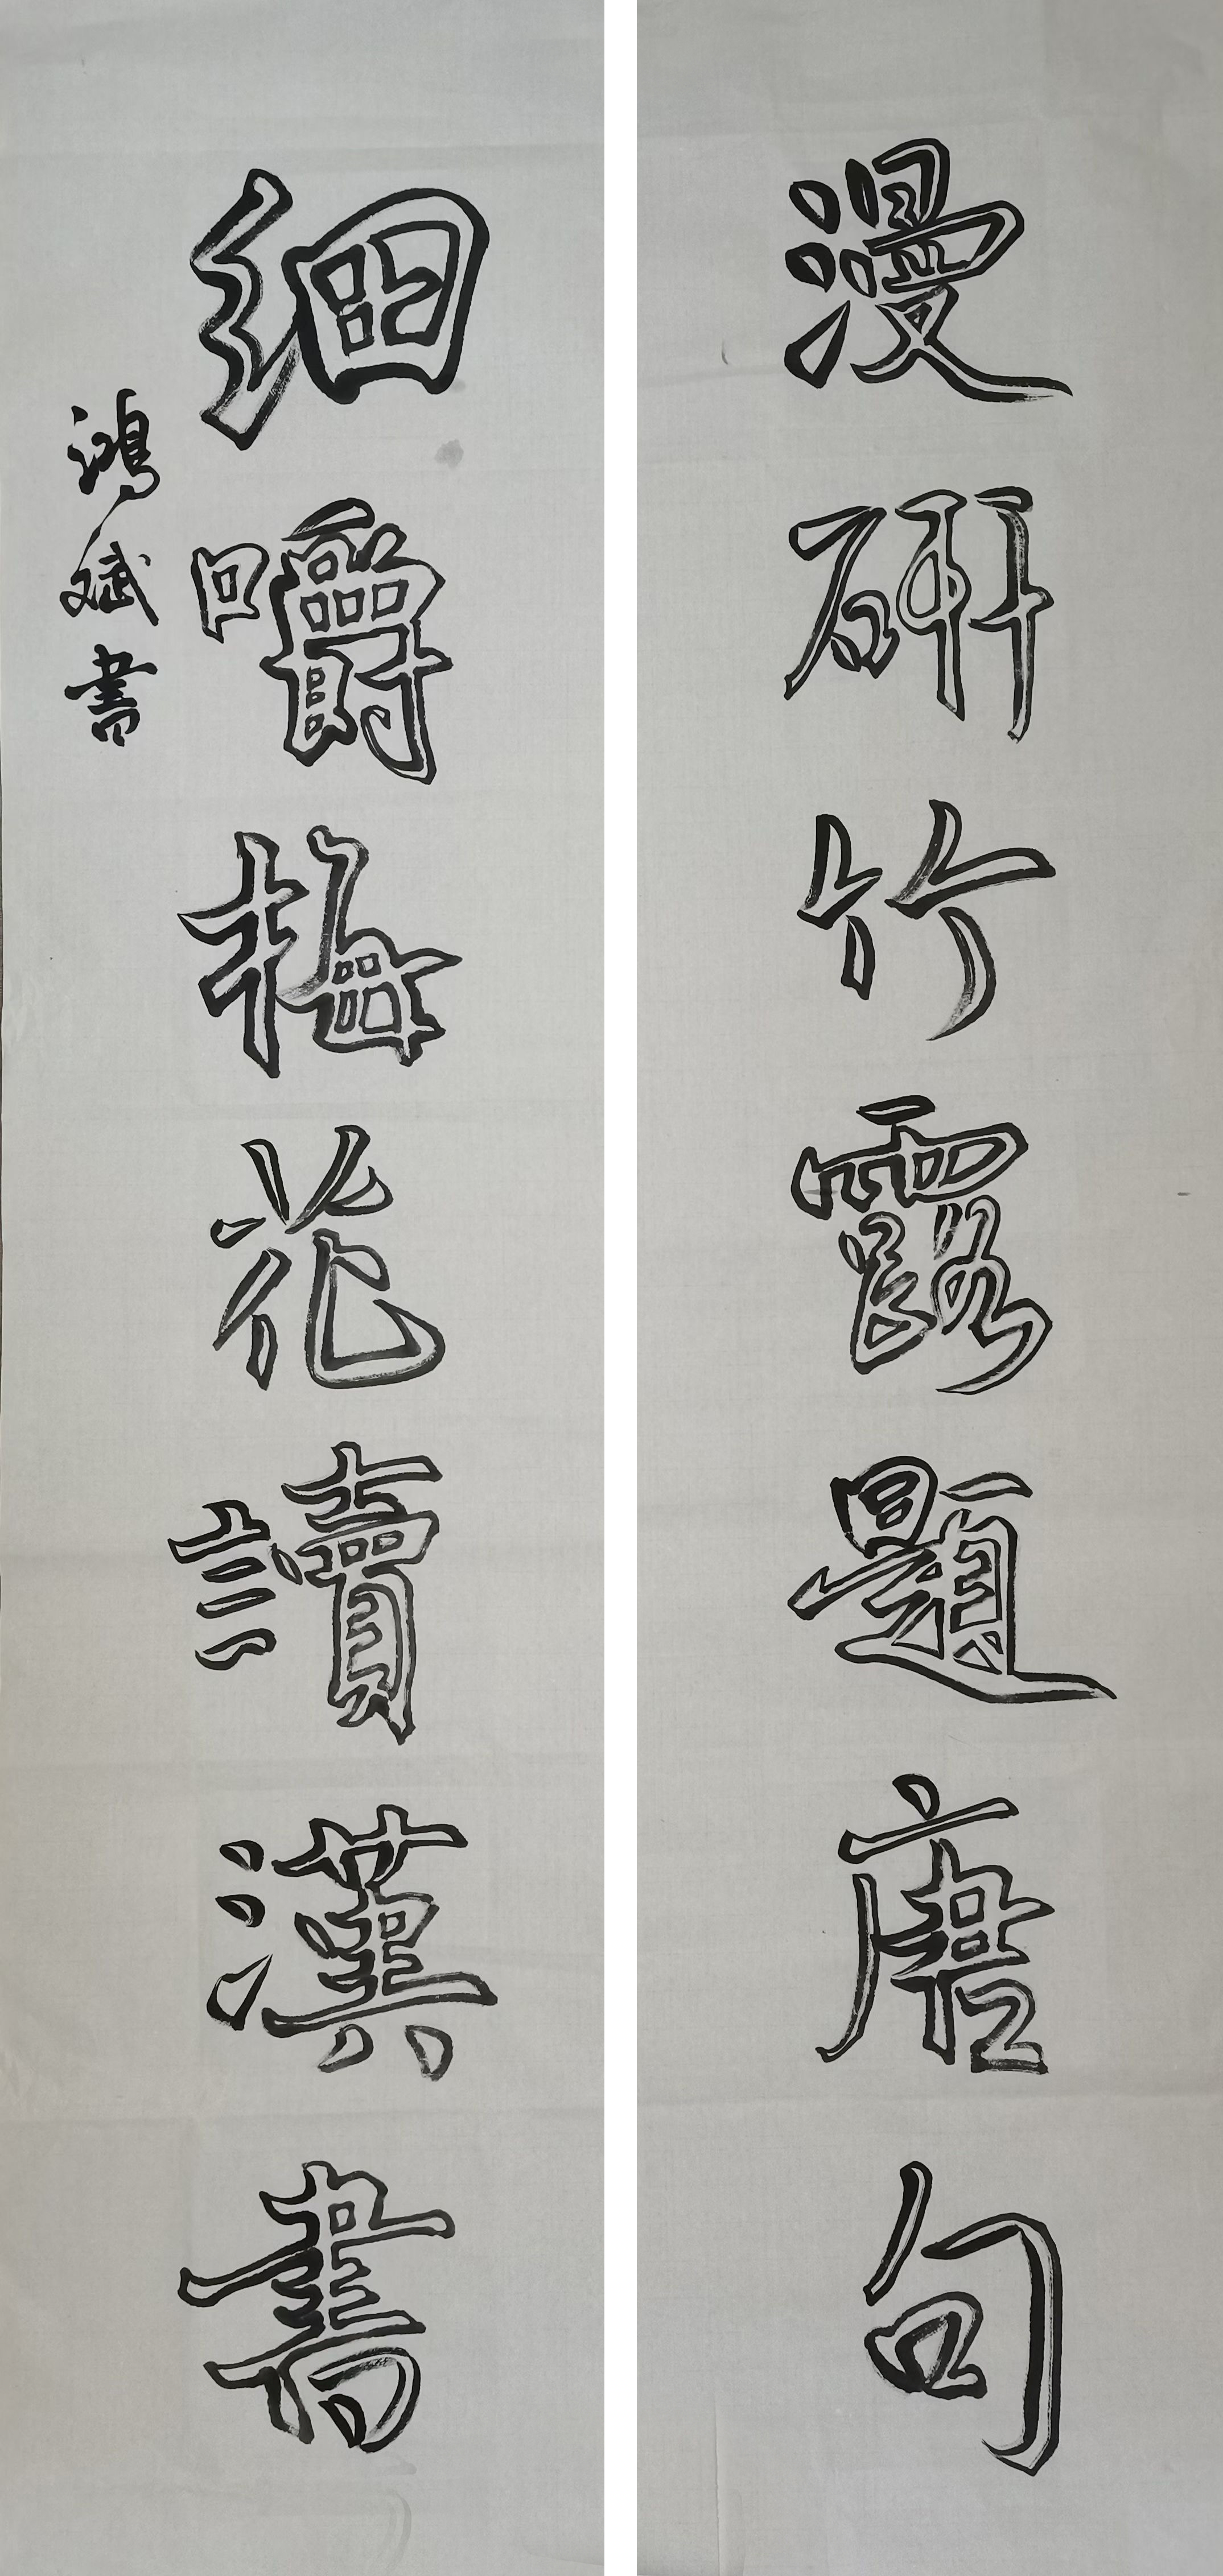 漫研竹露題唐句
細嚼梅花讀漢書
鴻斌書